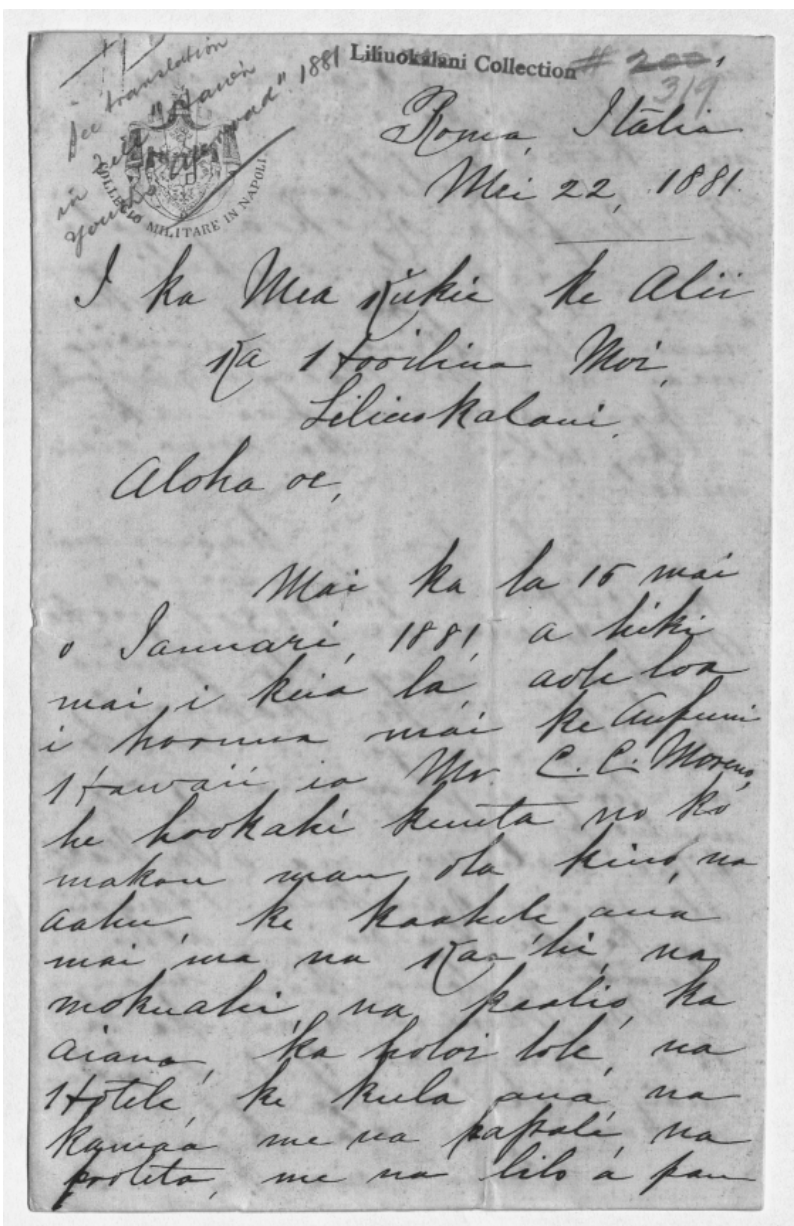 Liliuokalani Collection # 200,
319
See translation
in
Youths Abroad". 1881
COLLEGIO MILITARE IN NAPOLI
Roma, Italia
Mei 22, 1881.
I ka Mea Kiekie ke Alii
Ka Hooilina Moi,
Liliuokalani.
Aloha oe,
Mai ka la 15 mai
o Ianuari, 1881, a hiki
mai i keia la, aole loa
i hoouna mai ke Aupuni
Hawaii ia Mr. C. C. Moreno,
he hookahi keneta no ko
makou mau ola kino, na
aahu, ke kaahele ana
mai ma na Kaahi, na
mokuahi, na kaalio, ka
aiana, ka holoi lole, na
Hotele, ke kula ana, na
kamaa me na papale, na
me na lilo a pau